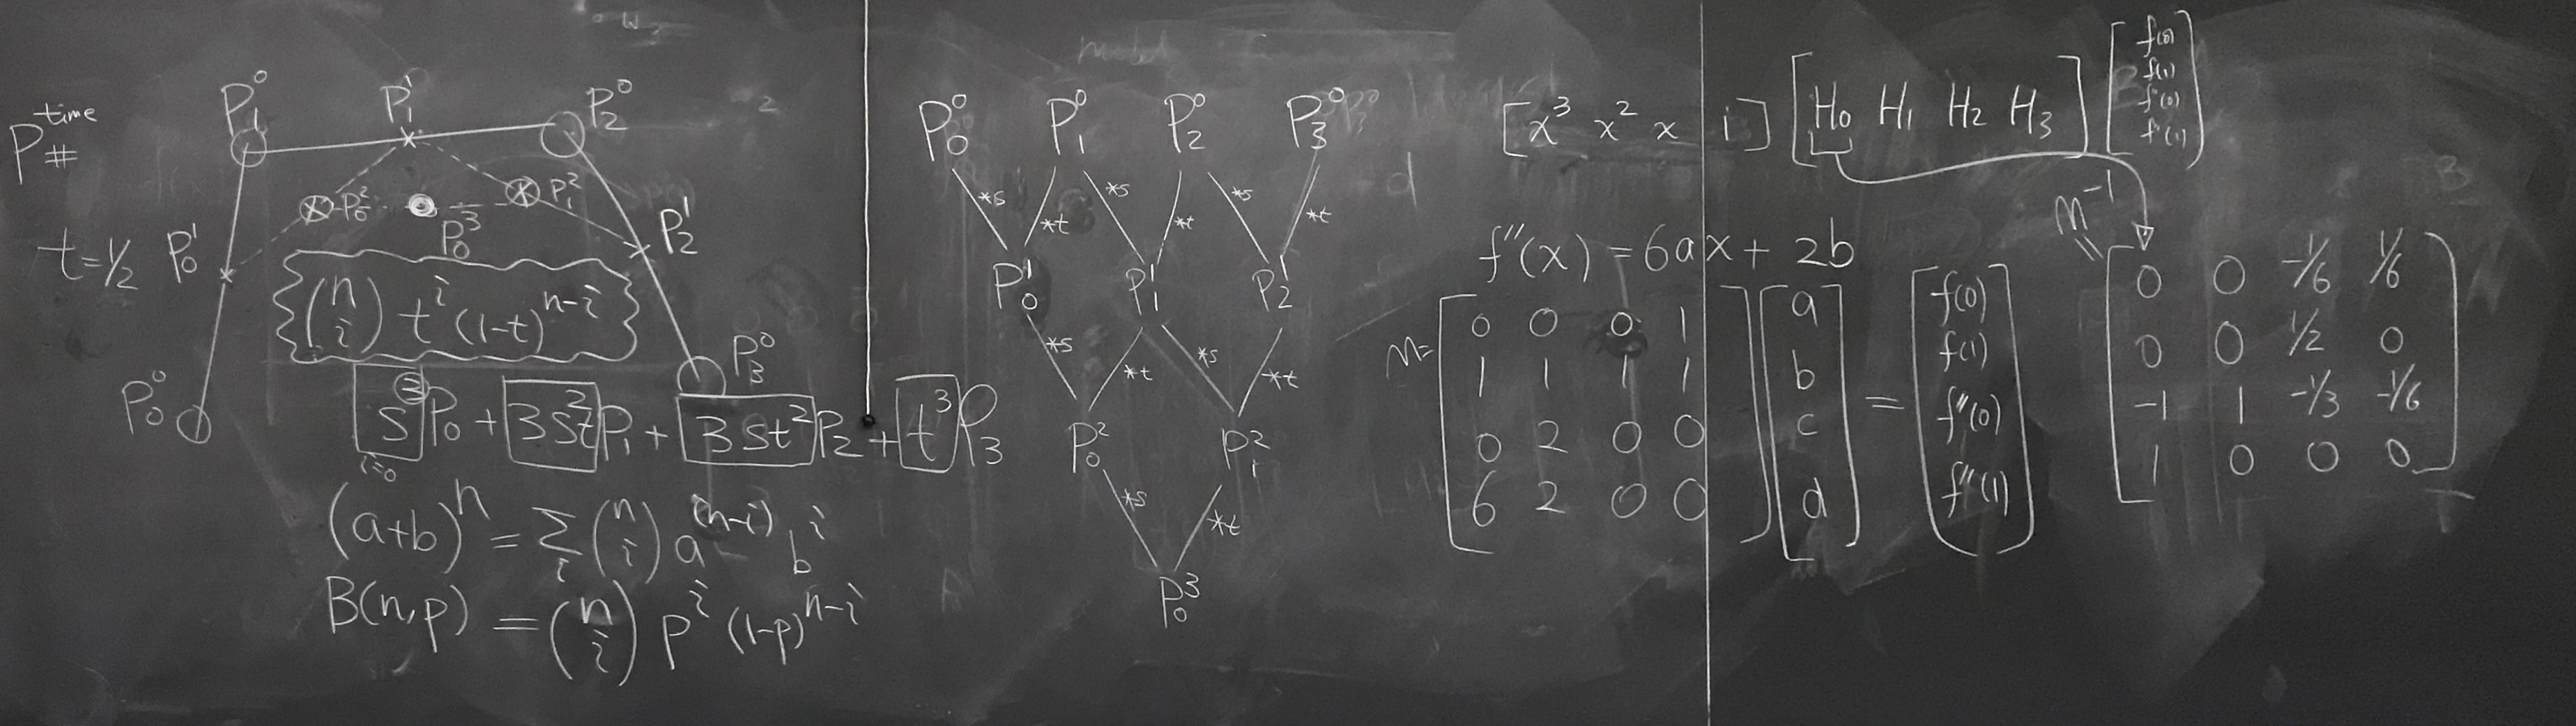 P#^time
P₁⁰ P₁¹ P₂⁰
P₀² P₁²
P₀³
t=1/2 P₀¹ P₂¹
(n i) t^i (1-t)^(n-i)
P₀⁰ P₃⁰
s³P₀ + 3s²tP₁ + 3st²P₂ + t³P₃
i=0
(a+b)^n = Σ_i (n i) a^(n-i) b^i
B(n,p) = (n i) p^i (1-p)^(n-i)
P₀⁰ P₁⁰ P₂⁰ P₃⁰
*s *t *s *t *s *t
P₀¹ P₁¹ P₂¹
*s *t *s *t
P₀² P₁²
*s *t
P₀³
[x³ x² x i] [H₀ H₁ H₂ H₃] [f(0) f(1) f''(0) f''(1)]
f''(x) = 6ax + 2b
M=
[0 0 0 1] [a] = [f(0)]
[1 1 1 1] [b] [f(1)]
[0 2 0 0] [c] [f''(0)]
[6 2 0 0] [d] [f''(1)]
M⁻¹
=
0 0 -1/6 1/6
0 0 1/2 0
-1 1 -1/3 -1/6
1 0 0 0